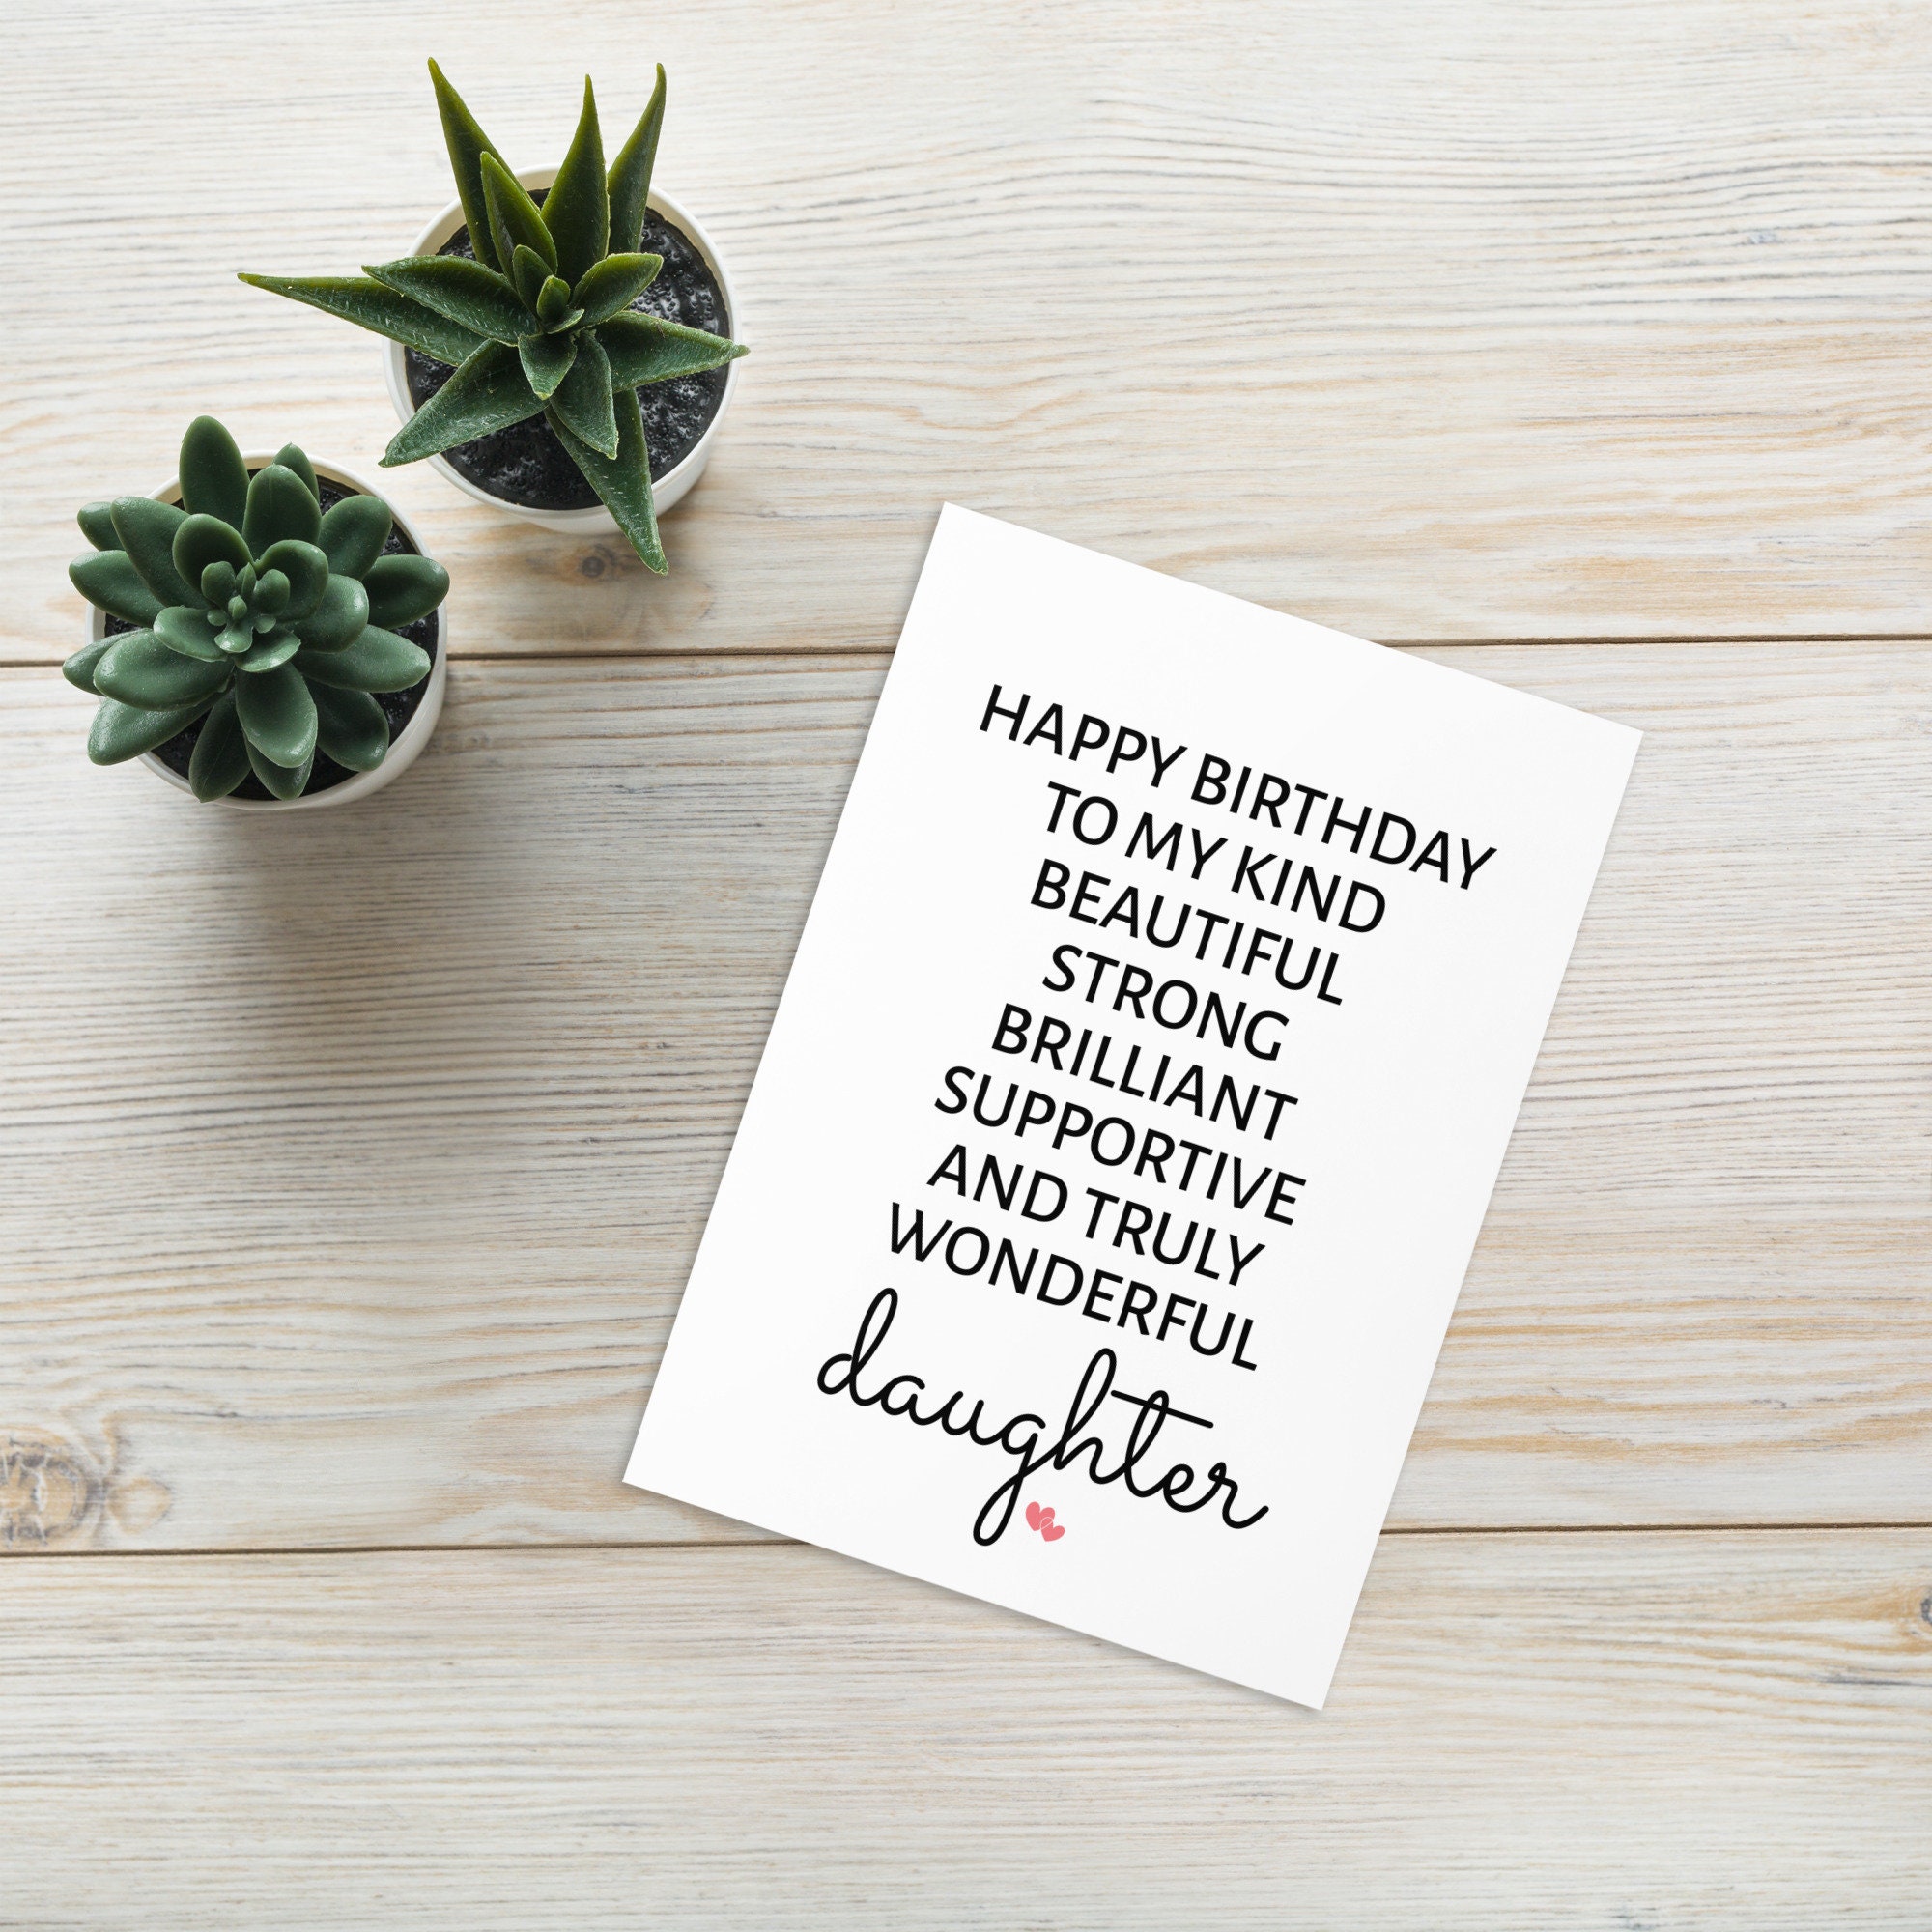 HAPPY BIRTHDAY
TO MY KIND
BEAUTIFUL
STRONG
BRILLIANT
SUPPORTIVE
AND TRULY
WONDERFUL
daughter